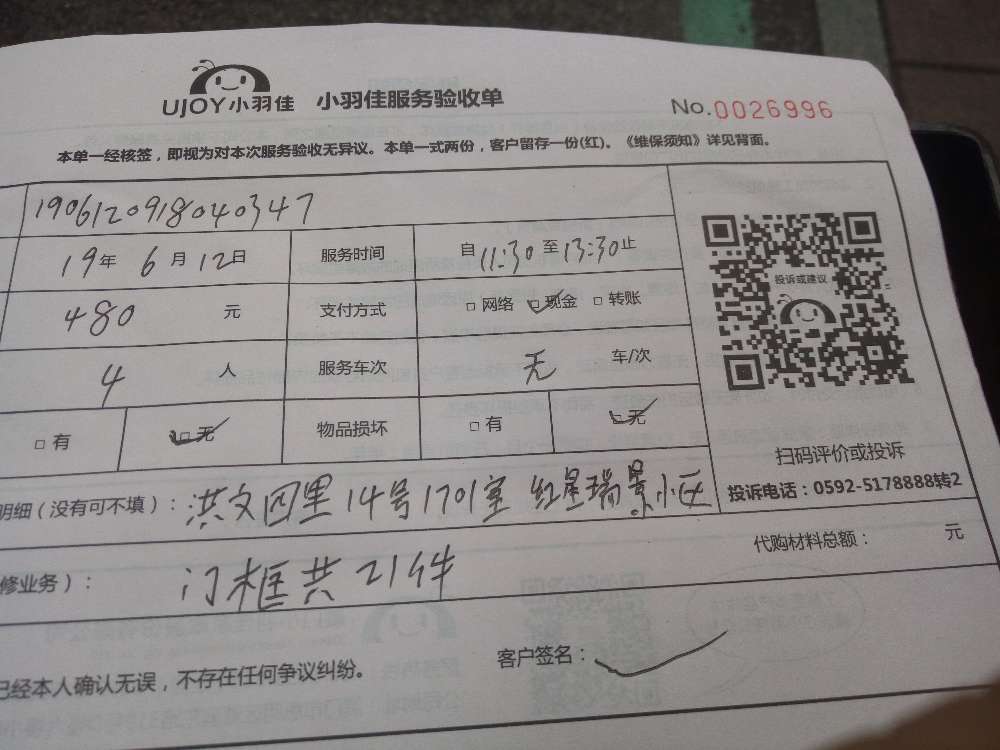 UJOY小羽佳 小羽佳服务验收单 No.0026996
本单一经核签，即视为对本次服务验收无异议。本单一式两份，客户留存一份(红)。《维保须知》详见背面。
1906120918040347
19年6月12日 服务时间 自11:30至13:30止
480 元 支付方式 □网络 □现金 □转账
4 人 服务车次 无 车/次
□有 □无 物品损坏 □有 □无
投诉或建议
扫码评价或投诉
投诉电话：0592-5178888转2
明细（没有可不填）：洪文四里14号1701室 红星瑞景小区
修业务）： 门框共21件 代购材料总额： 元
已经本人确认无误，不存在任何争议纠纷。 客户签名：